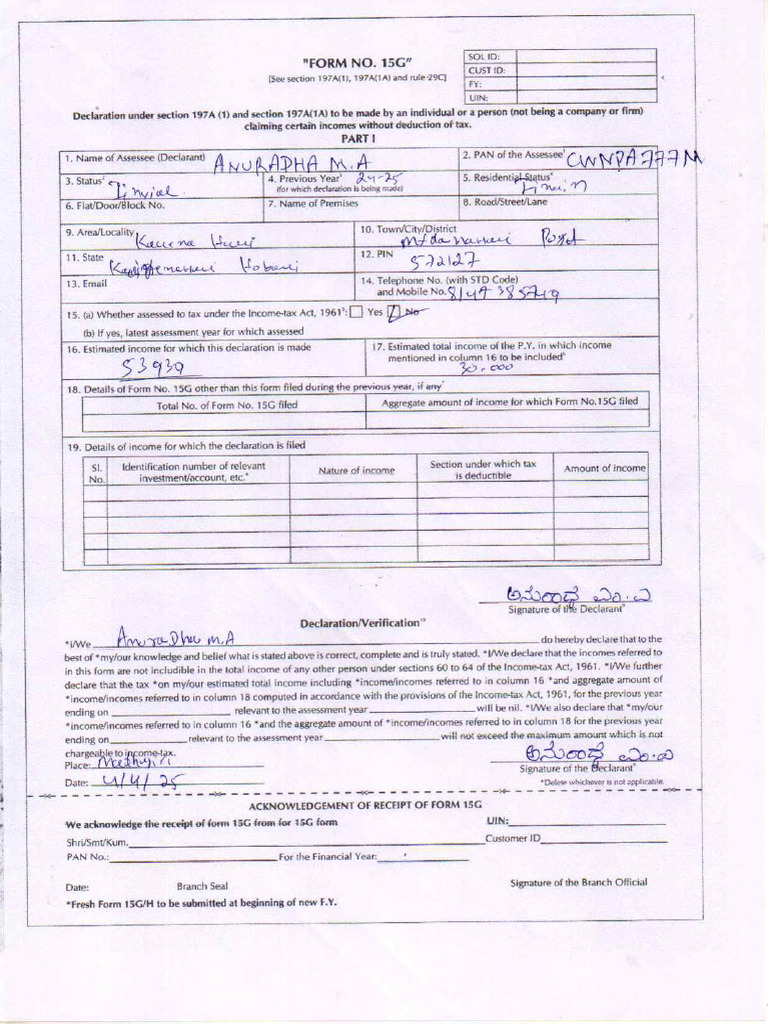 "FORM NO. 15G"
[See section 197A(1), 197A(1A) and rule 29C]
SOL ID:
CUST ID:
FY:
UIN:
Declaration under section 197A (1) and section 197A(1A) to be made by an individual or a person (not being a company or firm)
claiming certain incomes without deduction of tax.
PART I
1. Name of Assessee (Declarant) ANURADHA M.A
2. PAN of the Assessee¹ CWNPA777M
3. Status²
4. Previous Year³ 24-25
(for which declaration is being made)
5. Residential Status⁴
6. Flat/Door/Block No.
7. Name of Premises
8. Road/Street/Lane
9. Area/Locality
10. Town/City/District Post
11. State
12. PIN 572127
13. Email
14. Telephone No. (with STD Code)
and Mobile No. 8147385749
15. (a) Whether assessed to tax under the Income-tax Act, 1961⁵: Yes No
(b) If yes, latest assessment year for which assessed
16. Estimated income for which this declaration is made
53939
17. Estimated total income of the P.Y. in which income
mentioned in column 16 to be included⁶
30.000
18. Details of Form No. 15G other than this form filed during the previous year, if any⁷
Total No. of Form No. 15G filed
Aggregate amount of income for which Form No.15G filed
19. Details of income for which the declaration is filed
Sl. No.
Identification number of relevant investment/account, etc.⁸
Nature of income
Section under which tax is deductible
Amount of income
ಅನುರಾಧ ಎಂ.ಎ
Signature of the Declarant⁹
Declaration/Verification¹⁰
*I/We Anuradha M.A do hereby declare that to the
best of *my/our knowledge and belief what is stated above is correct, complete and is truly stated. *I/We declare that the incomes referred to
in this form are not includible in the total income of any other person under sections 60 to 64 of the Income-tax Act, 1961. *I/We further
declare that the tax *on my/our estimated total income including *income/incomes referred to in column 16 *and aggregate amount of
*income/incomes referred to in column 18 computed in accordance with the provisions of the Income-tax Act, 1961, for the previous year
ending on relevant to the assessment year will be nil. *I/We also declare that *my/our
*income/incomes referred to in column 16 *and the aggregate amount of *income/incomes referred to in column 18 for the previous year
ending on relevant to the assessment year will not exceed the maximum amount which is not
chargeable to income-tax.
Place:
ಅನುರಾಧ ಎಂ.ಎ
Signature of the Declarant⁹
Date: 4/4/25
*Delete whichever is not applicable.
ACKNOWLEDGEMENT OF RECEIPT OF FORM 15G
We acknowledge the receipt of form 15G from for 15G form
UIN:
Shri/Smt/Kum.
Customer ID
PAN No.: For the Financial Year:
Date: Branch Seal
Signature of the Branch Official
*Fresh Form 15G/H to be submitted at beginning of new F.Y.